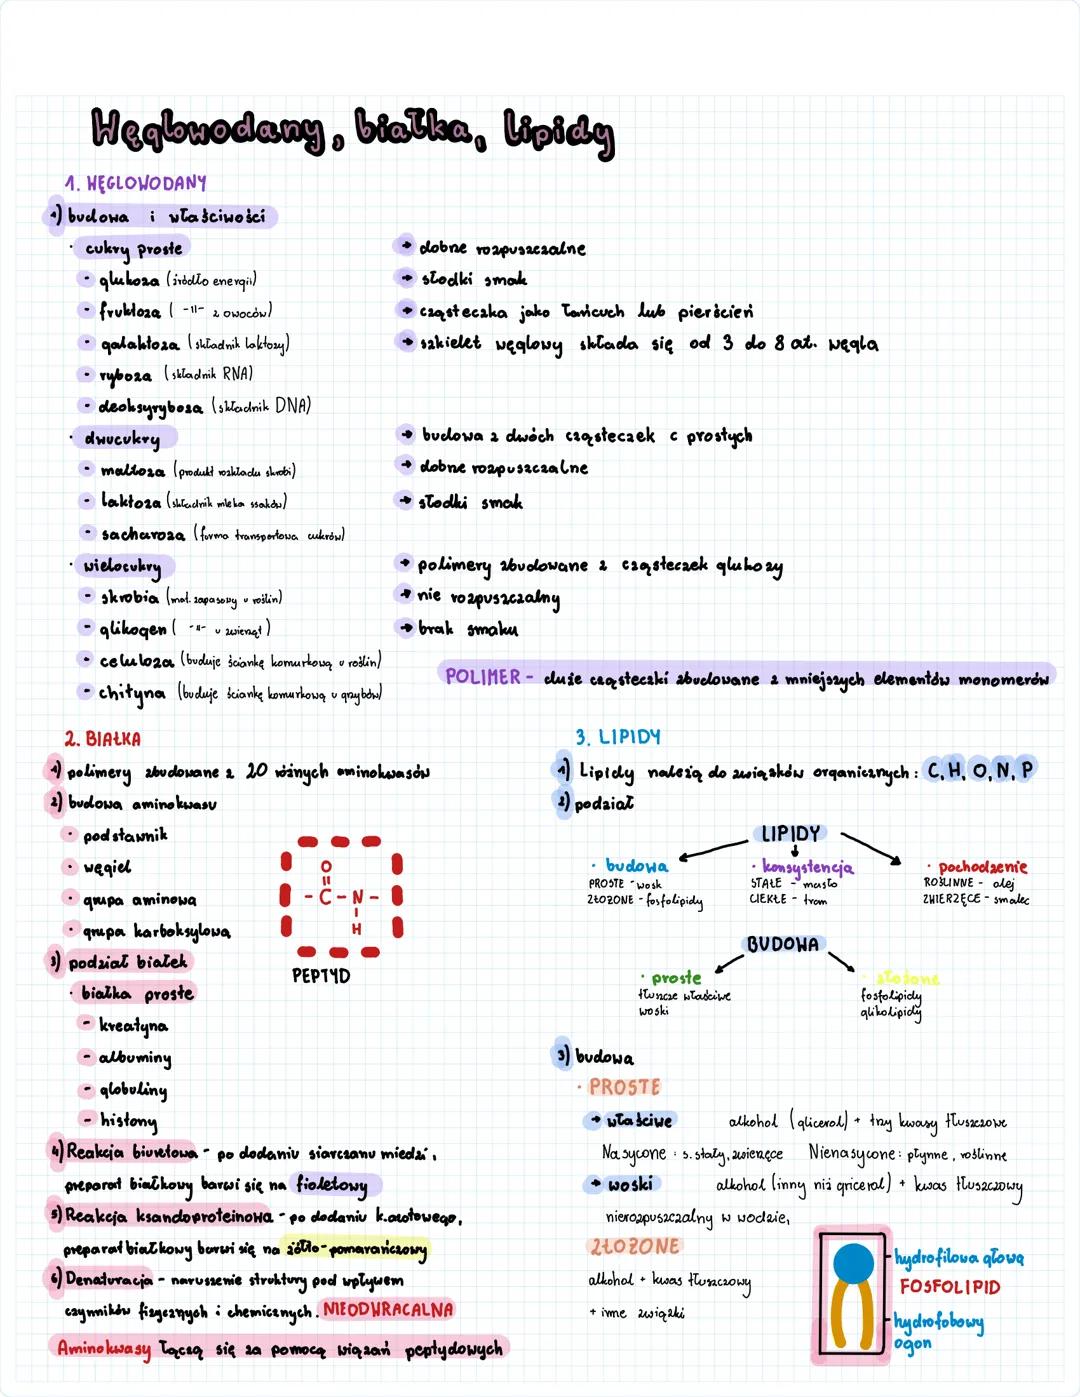 Węglowodany, białka, lipidy
1. WĘGLOWODANY
1) budowa i właściwości
· cukry proste
- glukoza (źródło energii)
- fruktoza ( -11- z owoców)
- galaktoza (składnik laktozy)
- ryboza (składnik RNA)
- deoksyryboza (składnik DNA)
→ dobrze rozpuszczalne
→ słodki smak
→ cząsteczka jako łańcuch lub pierścień
→ szkielet węglowy składa się od 3 do 8 at. węgla
· dwucukry
- maltoza (produkt rozkładu skrobi)
- laktoza (składnik mleka ssaków)
- sacharoza (forma transportowa cukrów)
→ budowa z dwóch cząsteczek c prostych
→ dobrze rozpuszczalne
→ słodki smak
· wielocukry
- skrobia (mat. zapasowy u roślin)
- glikogen ( -11- u zwierząt)
- celuloza (buduje ściankę komurkową u roślin)
- chityna (buduje ściankę komurkową u grzybów)
→ polimery zbudowane z cząsteczek glukozy
→ nie rozpuszczalny
→ brak smaku
POLIMER - duże cząsteczki zbudowane z mniejszych elementów monomerów
2. BIAŁKA
1) polimery zbudowane z 20 różnych aminokwasów
2) budowa aminokwasu
· podstawnik
· węgiel
· grupa aminowa
· grupa karboksylowa
O
- C - N -
H
PEPTYD
3) podział białek
· białka proste
- kreatyna
- albuminy
- globuliny
- histony
4) Reakcja biuretowa - po dodaniu siarczanu miedzi,
preparat białkowy barwi się na fioletowy
5) Reakcja ksandoproteinowa - po dodaniu k.azotowego,
preparat białkowy barwi się na żółto-pomarańczowy
6) Denaturacja - naruszenie struktury pod wpływem
czynników fizycznych i chemicznych. NIEODWRACALNA
Aminokwasy łączą się za pomocą wiązań peptydowych
3. LIPIDY
1) Lipidy należą do związków organicznych: C, H, O, N, P
2) podział
LIPIDY
· budowa
PROSTE - wosk
ZŁOŻONE - fosfolipidy
· konsystencja
STAŁE - masło
CIEKŁE - tran
· pochodzenie
ROŚLINNE - olej
ZWIERZĘCE - smalec
BUDOWA
· proste
tłuszcze właściwe
woski
· złożone
fosfolipidy
glikolipidy
3) budowa
· PROSTE
→ właściwe alkohol (glicerol) + trzy kwasy tłuszczowe
Nasycone : s. stały, zwierzęce Nienasycone: płynne, roślinne
→ woski alkohol (inny niż gricerol) + kwas tłuszczowy
nierozpuszczalny w wodzie,
ZŁOŻONE
alkohol + kwas tłuszczowy
+ inne związki
hydrofilowa głowa
FOSFOLIPID
hydrofobowy
ogon